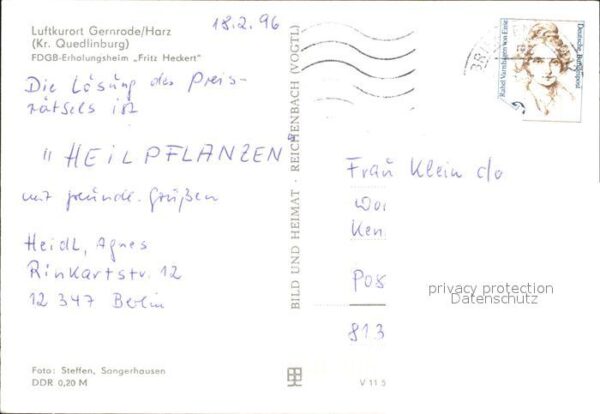 Luftkurort Gernrode/Harz
(Kr. Quedlinburg)
FDGB-Erholungsheim „Fritz Heckert"
18.2.96
Die Lösung des Preis-
rätsels ist
"HEILPFLANZEN"
mit freundl. Grüßen
Heidl, Agnes
Rinkartstr. 12
12 347 Berlin
Foto: Steffen, Sangerhausen
DDR 0,20 M
BILD UND HEIMAT · REICHENBACH (VOGTL)
V 11 5
Deutsche Bundespost
Rahel Varnhagen von Ense
Frau Klein c/o
Wor
Ken
Pos
813
privacy protection
Datenschutz